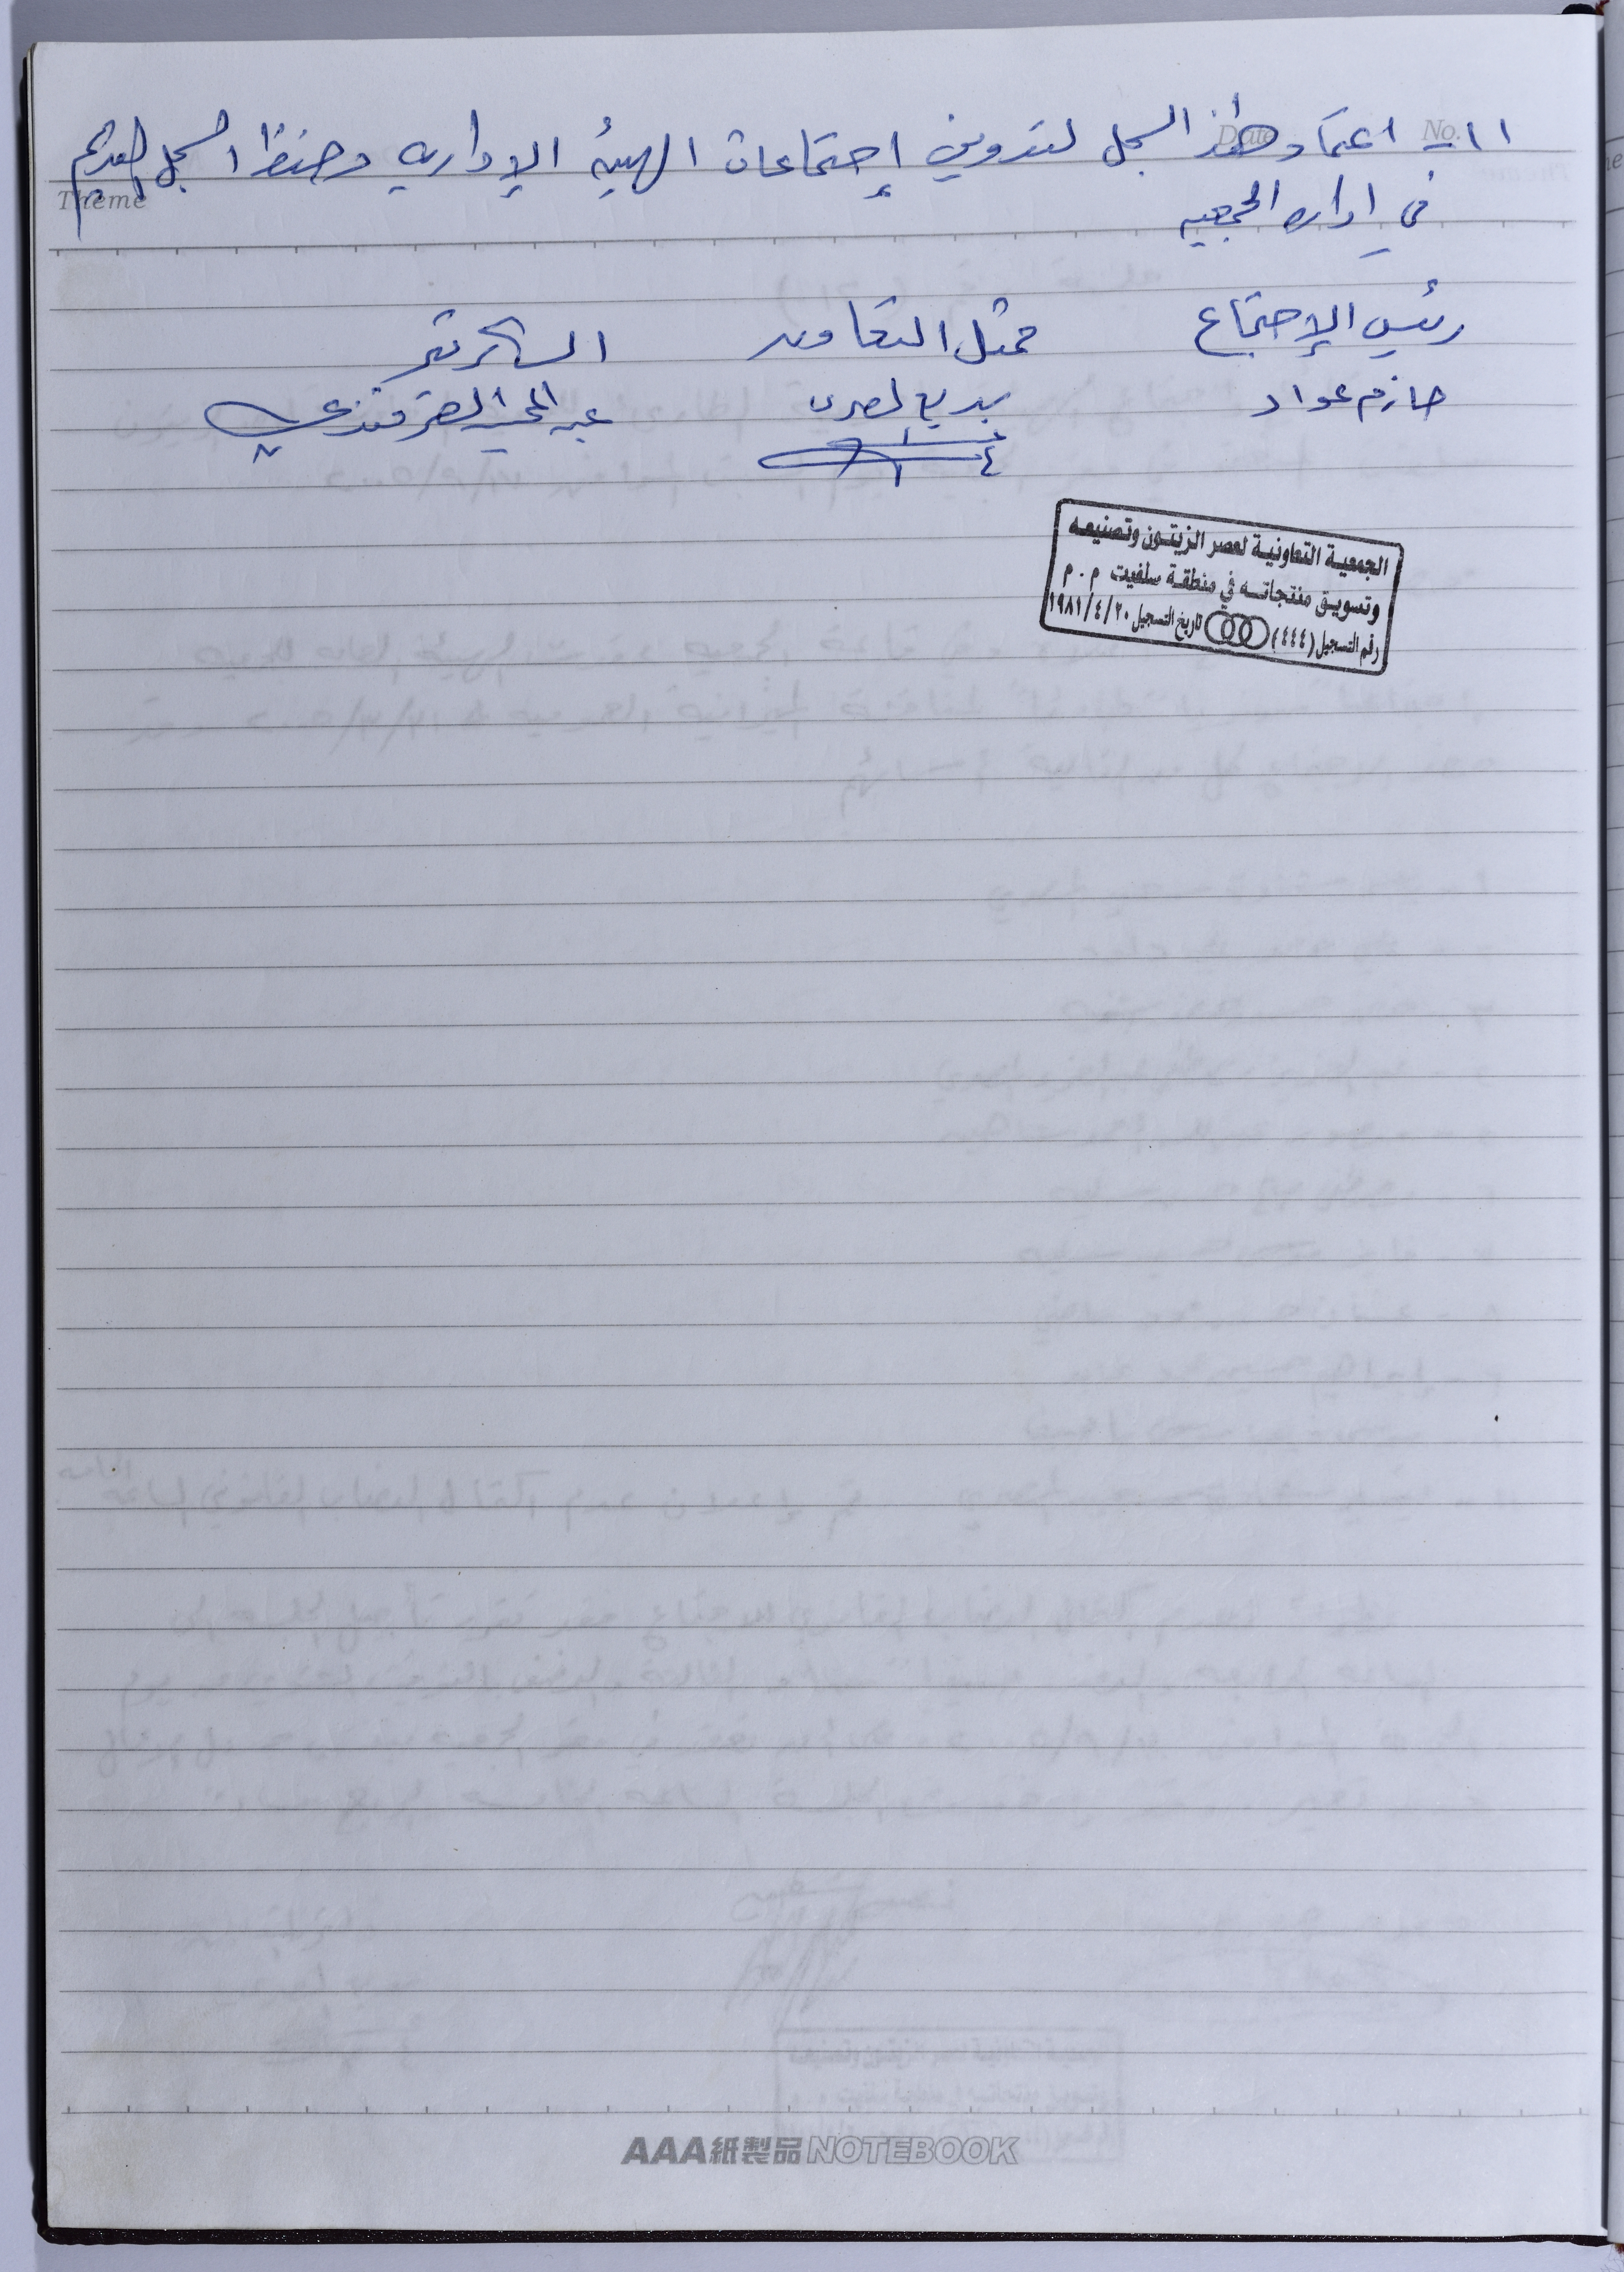 No.
Date
١١- اعتماد هذا السجل لتدوين إجتماعات الهيئة الإدارية وحفظ السجل القديم
Theme
في اداره الجمعيه
رئيس الإجتماع ممثل التعاون السكرتير
حازم عواد بديع عبد
الجمعية التعاونية لعصر الزيتون وتصنيعه
وتسويق منتجاته في منطقة سلفيت م.م
رقم التسجيل (٤٤٤) تاريخ التسجيل ١٩٨١/٤/٢٠
AAA紙製品NOTEBOOK